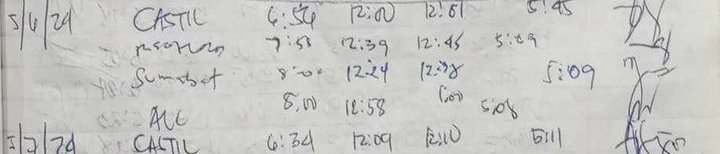 5/6/24 CASTIL 6:56 12:00 12:01 5:45
7:58 12:39 12:45 5:09
8:00 12:24 12:38 5:09
ALE 8:00 12:58 1:00 5:08
5/7/24 CASTIL 6:34 12:09 12:10 5:11